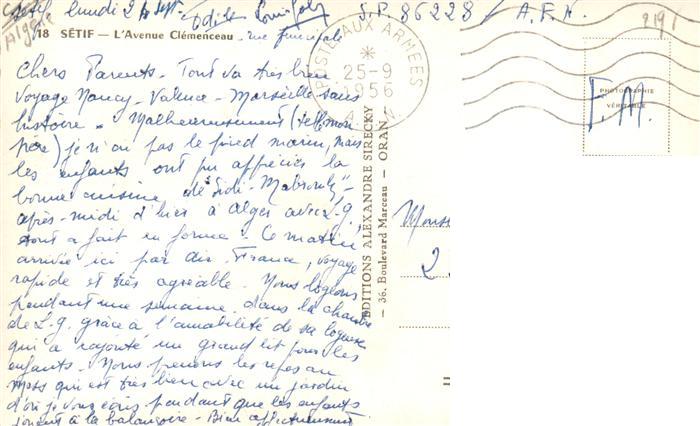 Sétif, lundi 24 Sept. Odile S.P. 86228 / A.F.N.
Algérie
2191
18 SÉTIF — L'Avenue Clémenceau - rue principale
POSTE AUX ARMEES
25-9
1956
A.F.N.
PHOTOGRAPHIE
VÉRITABLE
F.M.
Chers Parents - Tout va très bien
Voyage Nancy - Valence - Marseille sans
histoire. Malheureusement (telle mon
père) je n'ai pas le pied marin, mais
les enfants ont pu apprécier la
bonne cuisine de "Sidi-Mabrouk" -
après-midi d'hier à Alger avec L.g.
tout à fait en forme. Ce matin
arrivée ici par Air-France, voyage
rapide et très agréable. Nous logeons
pendant une semaine dans la chambre
de L.g. grâce à l'amabilité de sa logeuse
qui a rajouté un grand lit pour les
enfants - Nous prenons les repas au
mess qui est très bien avec un jardin
d'où je vous écris pendant que les enfants
jouent à la balançoire - Bien affectueusement
EDITIONS ALEXANDRE SIRECKY
— 36, Boulevard Marceau - ORAN —
Monss
2